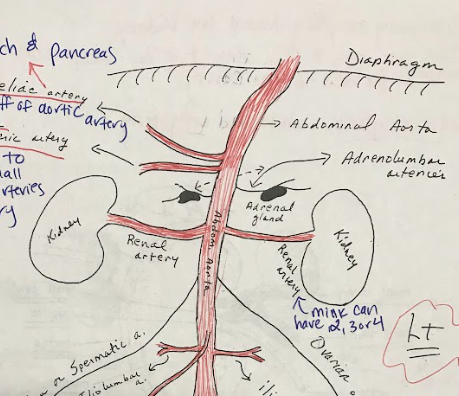 ch & pancreas
Diaphragm
eliac artery
ff of aortic artery
Abdominal Aorta
nic artery
to
all
rteries
ry
Adrenolumbar
arteries
Adrenal
gland
Kidney
Renal
artery
Abdom Aorta
Renal
artery
Kidney
mink can
have 2, 3 or 4
Lt
Ovarian
or Spermatic a.
Iliolumbar
a.
ili